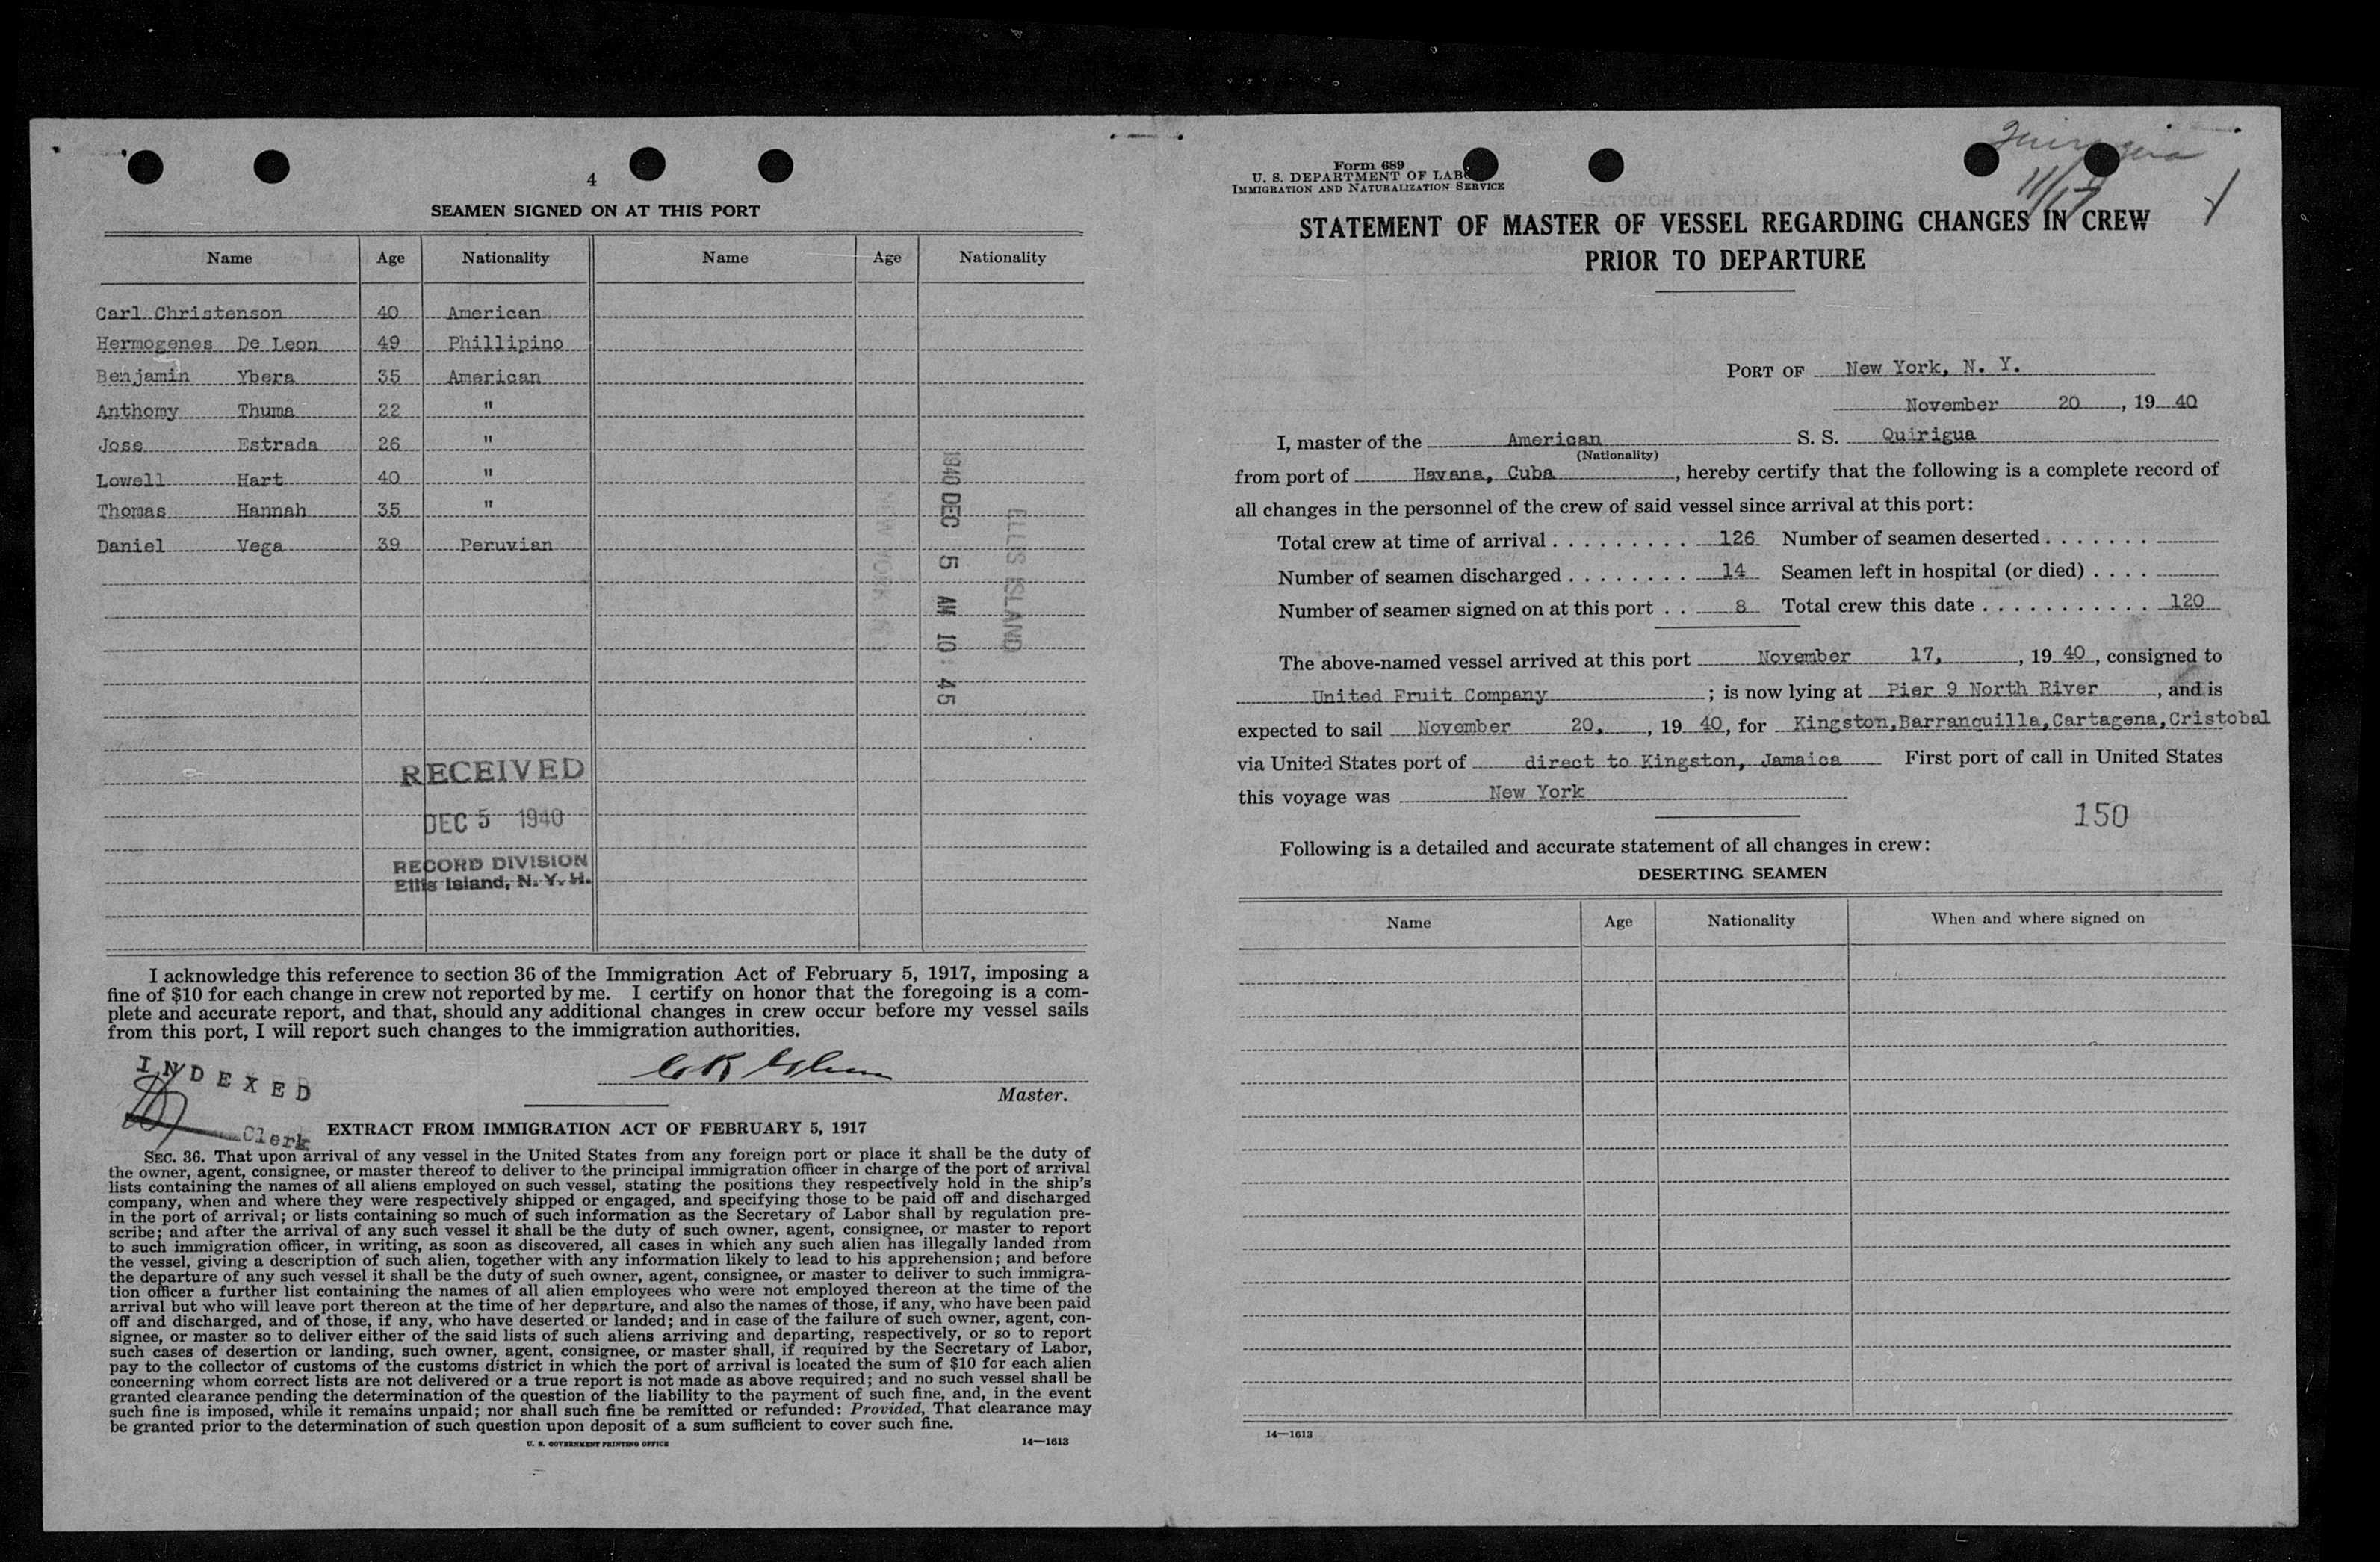 4
SEAMEN SIGNED ON AT THIS PORT
Name Age Nationality Name Age Nationality
Carl Christenson 40 American
Hermogenes De Leon 49 Phillipino
Benjamin Ybera 35 American
Anthomy Thuma 22 "
Jose Estrada 26 "
Lowell Hart 40 "
Thomas Hannah 35 "
Daniel Vega 39 Peruvian
1940 DEC 5 AM 10:45
ELLIS ISLAND
RECEIVED
DEC 5 1940
RECORD DIVISION
Ellis Island, N. Y. H.
I acknowledge this reference to section 36 of the Immigration Act of February 5, 1917, imposing a
fine of $10 for each change in crew not reported by me. I certify on honor that the foregoing is a com-
plete and accurate report, and that, should any additional changes in crew occur before my vessel sails
from this port, I will report such changes to the immigration authorities.
INDEXED
Master.
Clerk
EXTRACT FROM IMMIGRATION ACT OF FEBRUARY 5, 1917
SEC. 36. That upon arrival of any vessel in the United States from any foreign port or place it shall be the duty of
the owner, agent, consignee, or master thereof to deliver to the principal immigration officer in charge of the port of arrival
lists containing the names of all aliens employed on such vessel, stating the positions they respectively hold in the ship's
company, when and where they were respectively shipped or engaged, and specifying those to be paid off and discharged
in the port of arrival; or lists containing so much of such information as the Secretary of Labor shall by regulation pre-
scribe; and after the arrival of any such vessel it shall be the duty of such owner, agent, consignee, or master to report
to such immigration officer, in writing, as soon as discovered, all cases in which any such alien has illegally landed from
the vessel, giving a description of such alien, together with any information likely to lead to his apprehension; and before
the departure of any such vessel it shall be the duty of such owner, agent, consignee, or master to deliver to such immigra-
tion officer a further list containing the names of all alien employees who were not employed thereon at the time of the
arrival but who will leave port thereon at the time of her departure, and also the names of those, if any, who have been paid
off and discharged, and of those, if any, who have deserted or landed; and in case of the failure of such owner, agent, con-
signee, or master so to deliver either of the said lists of such aliens arriving and departing, respectively, or so to report
such cases of desertion or landing, such owner, agent, consignee, or master shall, if required by the Secretary of Labor,
pay to the collector of customs of the customs district in which the port of arrival is located the sum of $10 for each alien
concerning whom correct lists are not delivered or a true report is not made as above required; and no such vessel shall be
granted clearance pending the determination of the question of the liability to the payment of such fine, and, in the event
such fine is imposed, while it remains unpaid; nor shall such fine be remitted or refunded: Provided, That clearance may
be granted prior to the determination of such question upon deposit of a sum sufficient to cover such fine.
U. S. GOVERNMENT PRINTING OFFICE 14—1613
Quirigua
11/17
Form 689
U. S. DEPARTMENT OF LABOR
IMMIGRATION AND NATURALIZATION SERVICE
STATEMENT OF MASTER OF VESSEL REGARDING CHANGES IN CREW
PRIOR TO DEPARTURE
PORT OF New York, N. Y.
November 20, 1940
I, master of the American S. S. Quirigua
(Nationality)
from port of Havana, Cuba, hereby certify that the following is a complete record of
all changes in the personnel of the crew of said vessel since arrival at this port:
Total crew at time of arrival . . . . . . . . . 126 Number of seamen deserted . . . . . . .
Number of seamen discharged . . . . . . . . 14 Seamen left in hospital (or died) . . . .
Number of seamen signed on at this port . . 8 Total crew this date . . . . . . . . . . . 120
The above-named vessel arrived at this port November 17, , 19 40, consigned to
United Fruit Company ; is now lying at Pier 9 North River, and is
expected to sail November 20, , 19 40, for Kingston,Barranquilla,Cartagena,Cristobal
via United States port of direct to Kingston, Jamaica First port of call in United States
this voyage was New York
150
Following is a detailed and accurate statement of all changes in crew:
DESERTING SEAMEN
Name Age Nationality When and where signed on
14—1613